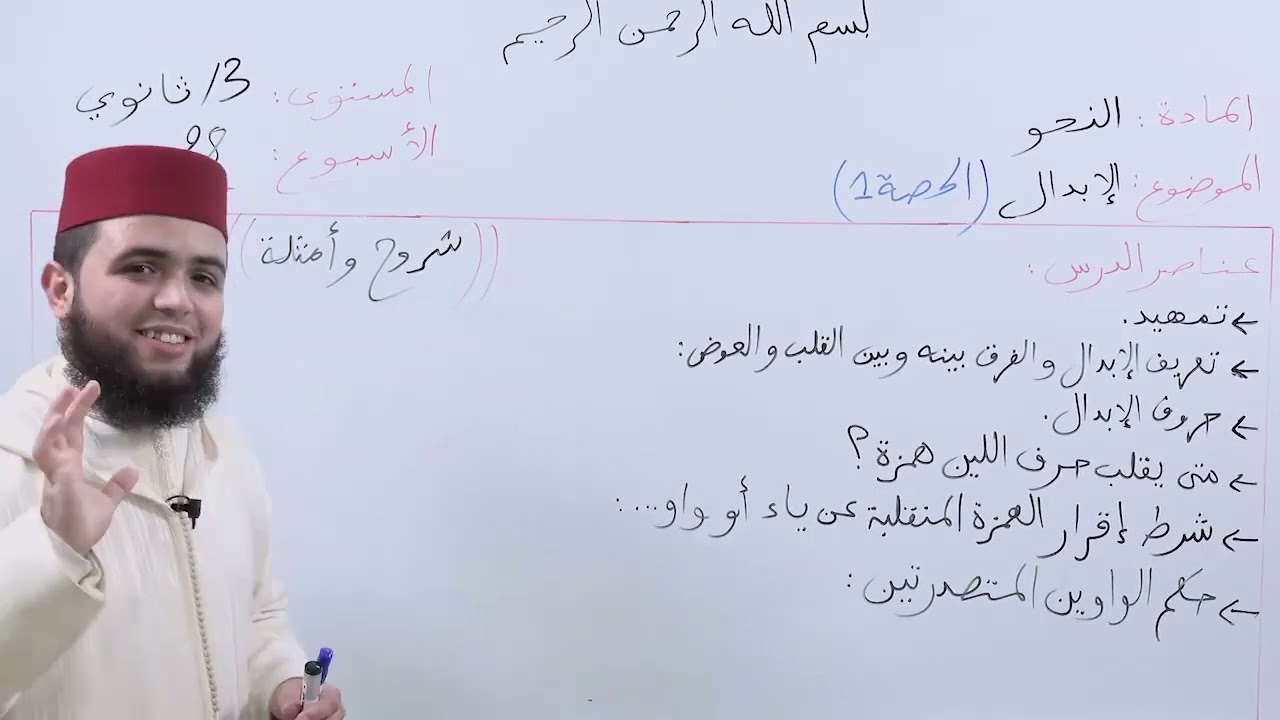 بسم الله الرحمن الرحيم
المادة: النحو
الموضوع: الإبدال (الحصة 1)
المستوى: 3/ ثانوي
الأسبوع:
عناصر الدرس:
((شروح وأمثلة))
← تمهيد.
← تعريف الإبدال والفرق بينه وبين القلب والعوض:
← حروف الإبدال.
← متى يقلب حرف اللين همزة؟
← شرط إقرار الهمزة المنقلبة عن ياء أو واو...:
← حكم الواوين المتصدرتين: